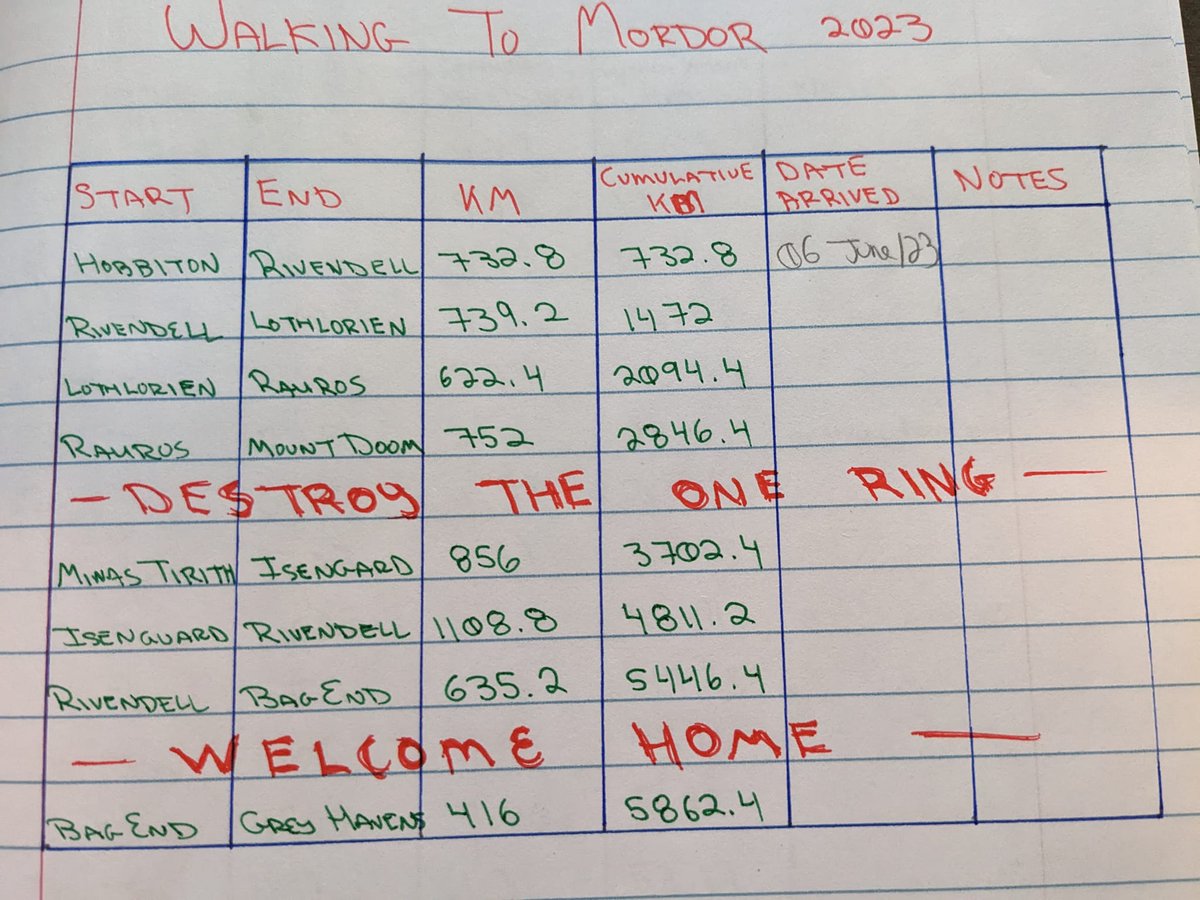 WALKING TO MORDOR 2023
START END KM CUMULATIVE KM DATE ARRIVED NOTES
HOBBITON RIVENDELL 732.8 732.8 06 June/23
RIVENDELL LOTHLORIEN 739.2 1472
LOTHLORIEN RAUROS 622.4 2094.4
RAUROS MOUNT DOOM 752 2846.4
— DESTROY THE ONE RING —
MINAS TIRITH ISENGARD 856 3702.4
ISENGUARD RIVENDELL 1108.8 4811.2
RIVENDELL BAG END 635.2 5446.4
— WELCOME HOME —
BAG END GREY HAVENS 416 5862.4